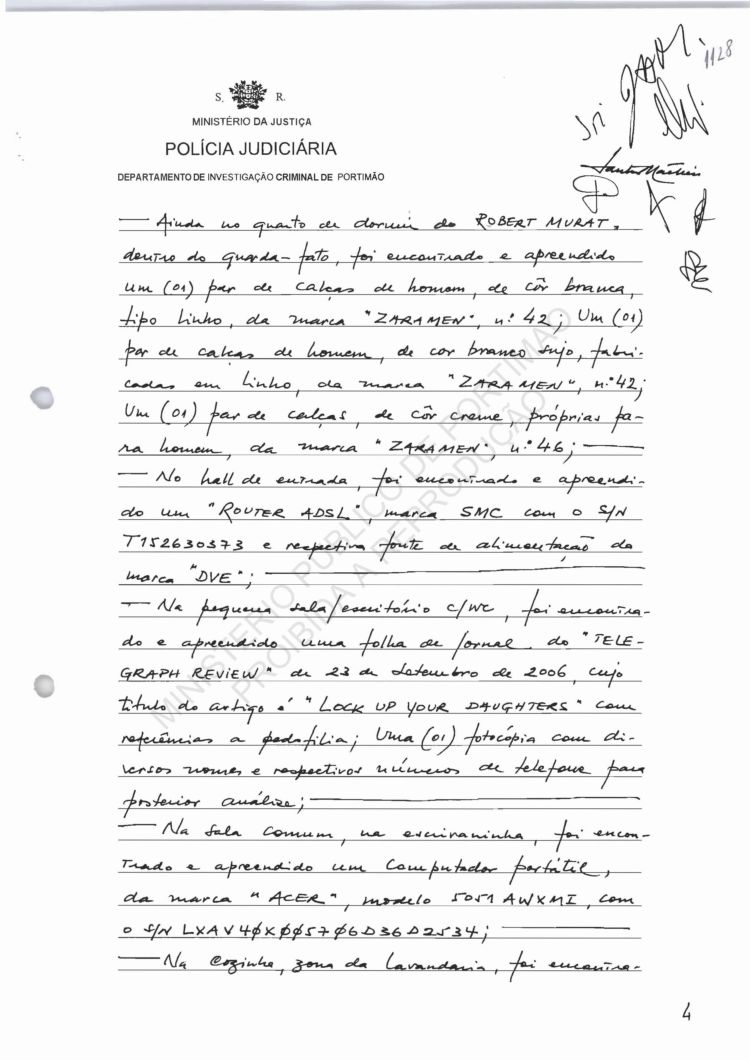 1128
S. R.
MINISTÉRIO DA JUSTIÇA
POLÍCIA JUDICIÁRIA
DEPARTAMENTO DE INVESTIGAÇÃO CRIMINAL DE PORTIMÃO
— Ainda no quarto de dormir do ROBERT MURAT,
dentro do guarda-fato, foi encontrado e apreendido
um (01) par de calças de homem, de côr branca,
tipo linho, da marca "ZARAMEN", n.º 42; Um (01)
par de calças de homem, de cor branco sujo, fabri-
cadas em linho, da marca "ZARAMEN", n.º 42;
Um (01) par de calças, de côr creme, próprias pa-
ra homem, da marca "ZARAMEN", n.º 46; —
— No hall de entrada, foi encontrado e apreendi-
do um "ROUTER ADSL", marca SMC com o S/N
T152630373 e respectiva fonte de alimentação da
marca "DVE"; —
— Na pequena sala/escritório c/WC, foi encontra-
do e apreendido uma folha de jornal do "TELE-
GRAPH REVIEW" de 23 de Setembro de 2006, cujo
titulo do artigo é "LOCK UP YOUR DAUGHTERS" com
referências a pedofilia; Uma (01) fotocópia com di-
versos nomes e respectivos números de telefone para
posterior análise; —
— Na sala comum, na escrivaninha, foi encon-
trado e apreendido um computador portátil,
da marca "ACER", modelo 5051 AWXMI, com
o S/N LXAV40X005706D36D2534; —
— Na cozinha, zona da lavandaria, foi encontra-
4
MINISTÉRIO PÚBLICO DE PORTIMÃO
PROIBIDA A REPRODUÇÃO